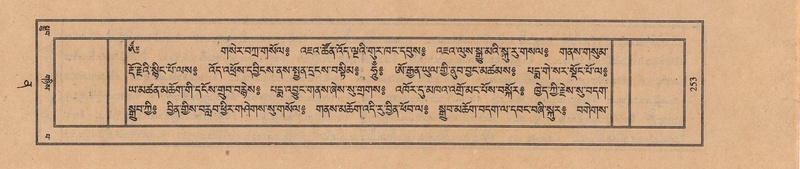 ༄༅༔ གསེར་བཀྲ་གསོལ༔ འཇའ་ཚོན་འོད་ལྔའི་གུར་ཁང་དབུས༔ འཇའ་ལུས་སྒྱུ་མའི་སྐུ་རུ་གསལ༔ གནས་གསུམ་
རྡོ་རྗེའི་སྙིང་པོ་ལས༔ འོད་འཕྲོས་དབྱིངས་ནས་སྤྱན་དྲངས་བསྟིམ༔ ཧཱུྃ༔ ཨོ་རྒྱན་ཡུལ་གྱི་ནུབ་བྱང་མཚམས༔ པདྨ་གེ་སར་སྡོང་པོ་ལ༔
ཡ་མཚན་མཆོག་གི་དངོས་གྲུབ་བརྙེས༔ པདྨ་འབྱུང་གནས་ཞེས་སུ་གྲགས༔ འཁོར་དུ་མཁའ་འགྲོ་མང་པོས་བསྐོར༔ ཁྱེད་ཀྱི་རྗེས་སུ་བདག་
སྒྲུབ་ཀྱི༔ བྱིན་གྱིས་བརླབ་ཕྱིར་གཤེགས་སུ་གསོལ༔ གནས་མཆོག་འདི་རུ་བྱིན་ཕོབ་ལ༔ སྒྲུབ་མཆོག་བདག་ལ་དབང་བཞི་སྐུར༔ བགེགས་
253